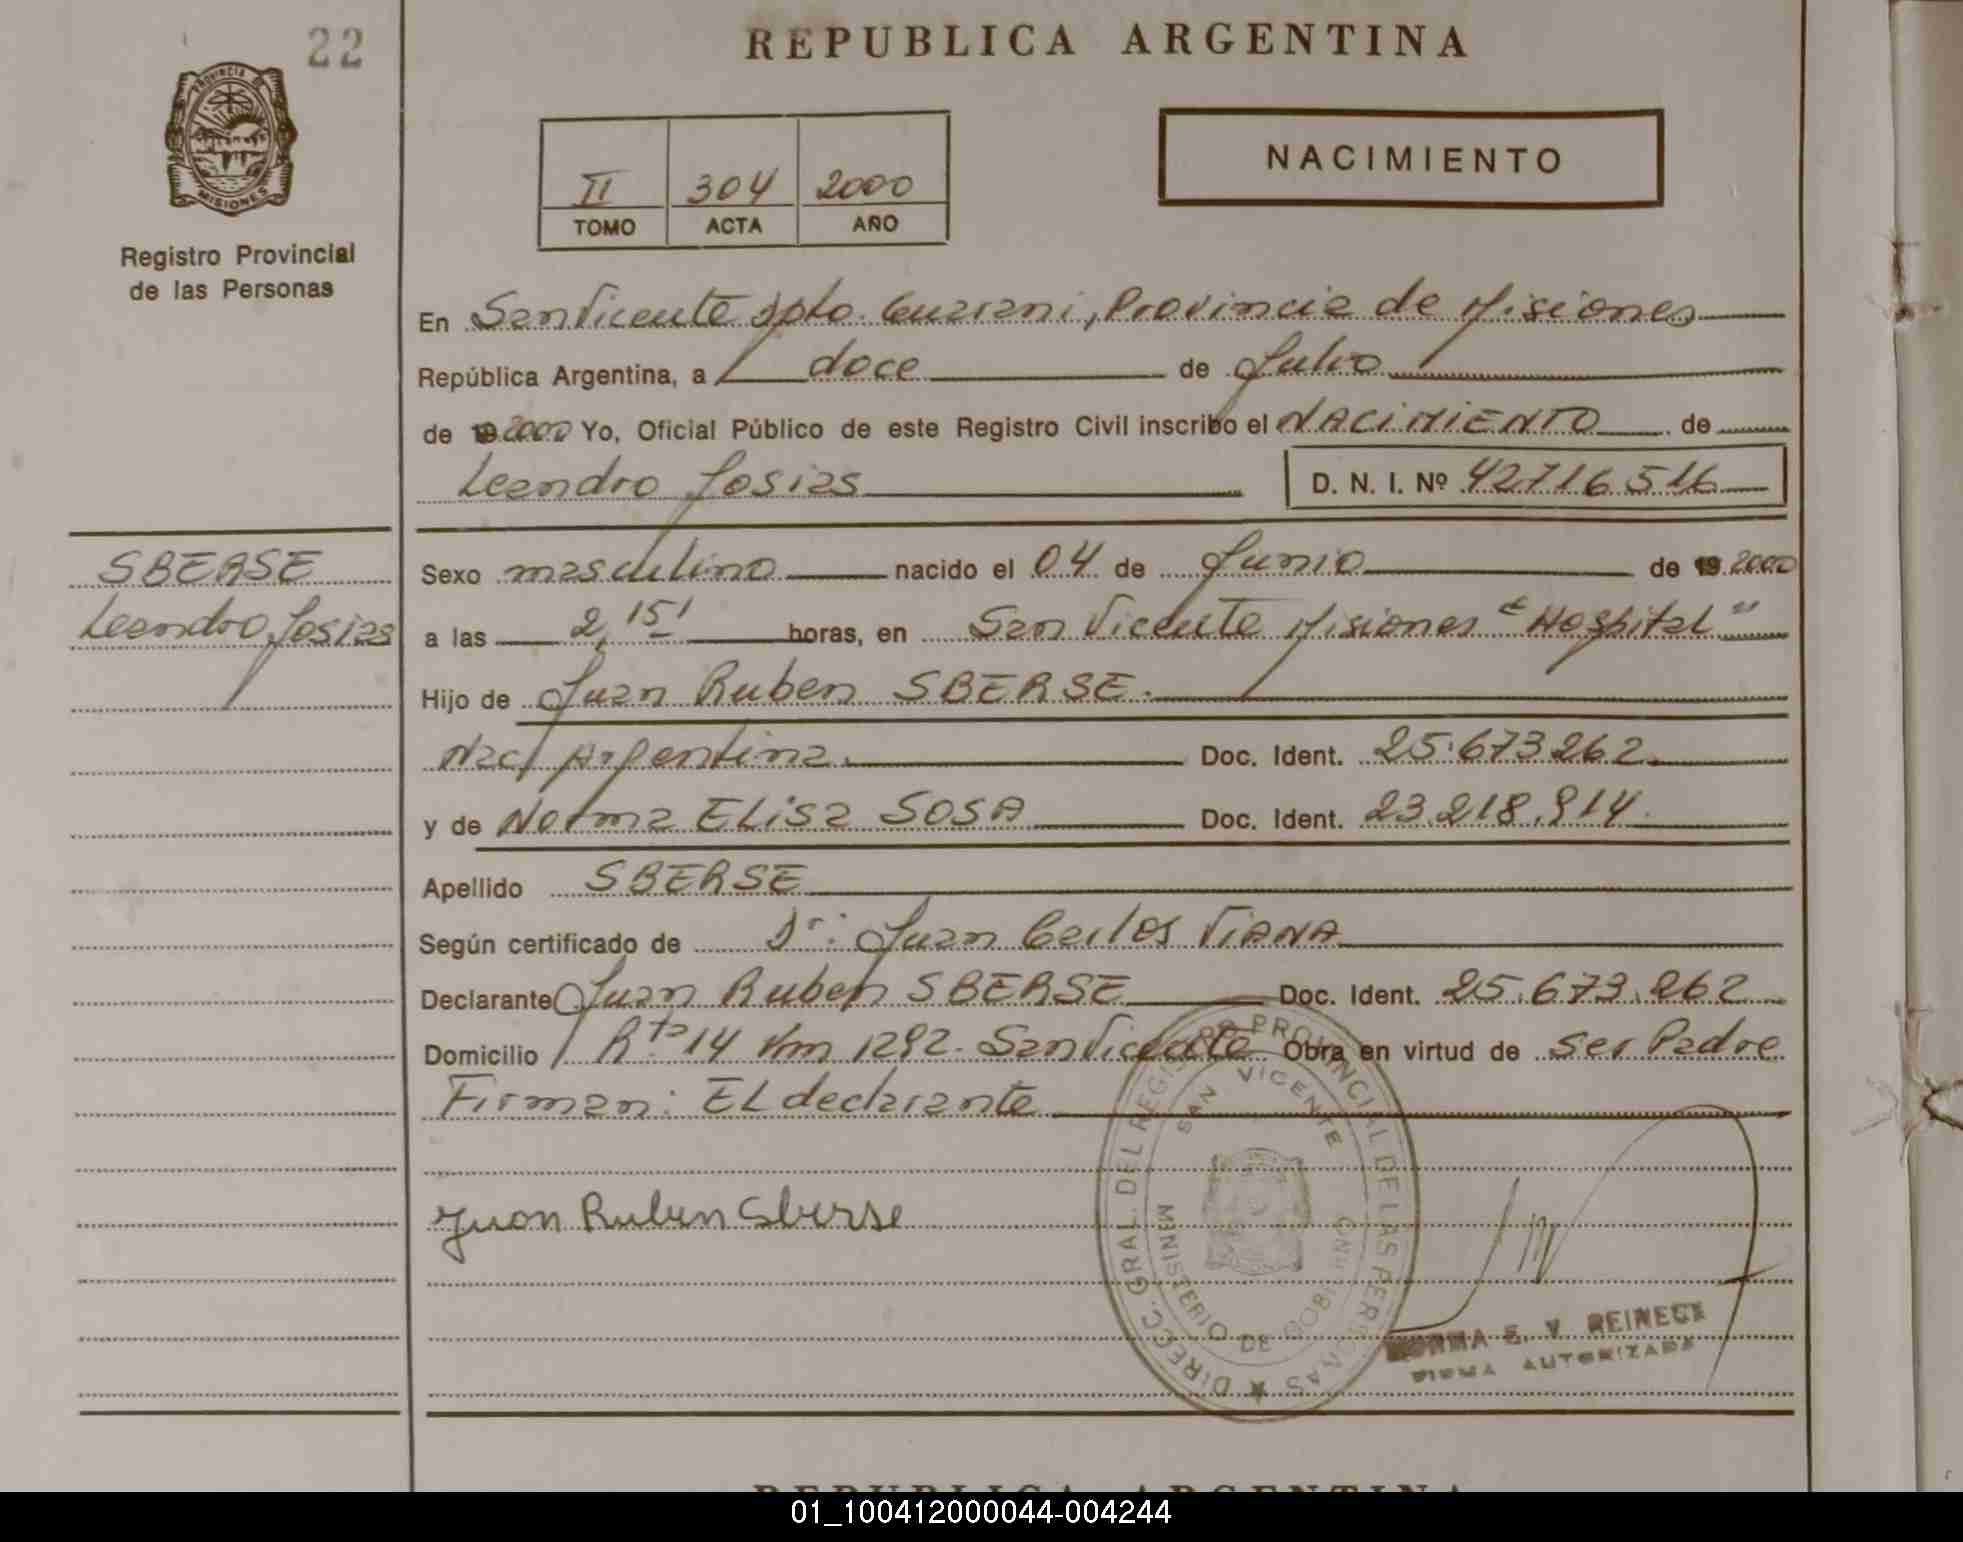 22
REPUBLICA ARGENTINA
PROVINCIA DE
MISIONES
Registro Provincial
de las Personas
II 304 2000
TOMO ACTA AÑO
NACIMIENTO
En San Vicente Dpto. Guarani, Provincia de Misiones
República Argentina, a doce de Julio
de 19 2000 Yo, Oficial Público de este Registro Civil inscribo el NACIMIENTO de
Leandro Josias D. N. I. Nº 42716516
SBERSE
Leandro Josias
Sexo masculino nacido el 04 de Junio de 19 2000
a las 2,15' horas, en San Vicente Misiones "Hospital"
Hijo de Juan Ruben SBERSE.
Nac/ Argentina. Doc. Ident. 25.673262.
y de Norma ELisa SOSA Doc. Ident. 23.218.914.
Apellido SBERSE
Según certificado de Dr: Juan Carlos ViANA
Declarante Juan Ruben SBERSE Doc. Ident. 25.673.262
Domicilio Rta 14 Km 1292. San Vicente Obra en virtud de ser Padre
Firman: EL declarante
Juan Ruben Sberse
DIRECC. GRAL. DEL REGISTRO PROVINCIAL DE LAS PERSONAS
SAN VICENTE
MINISTERIO DE GOBIERNO
NORMA E. V. REINECK
FIRMA AUTORIZADA
REPUBLICA ARGENTINA
01_100412000044-004244